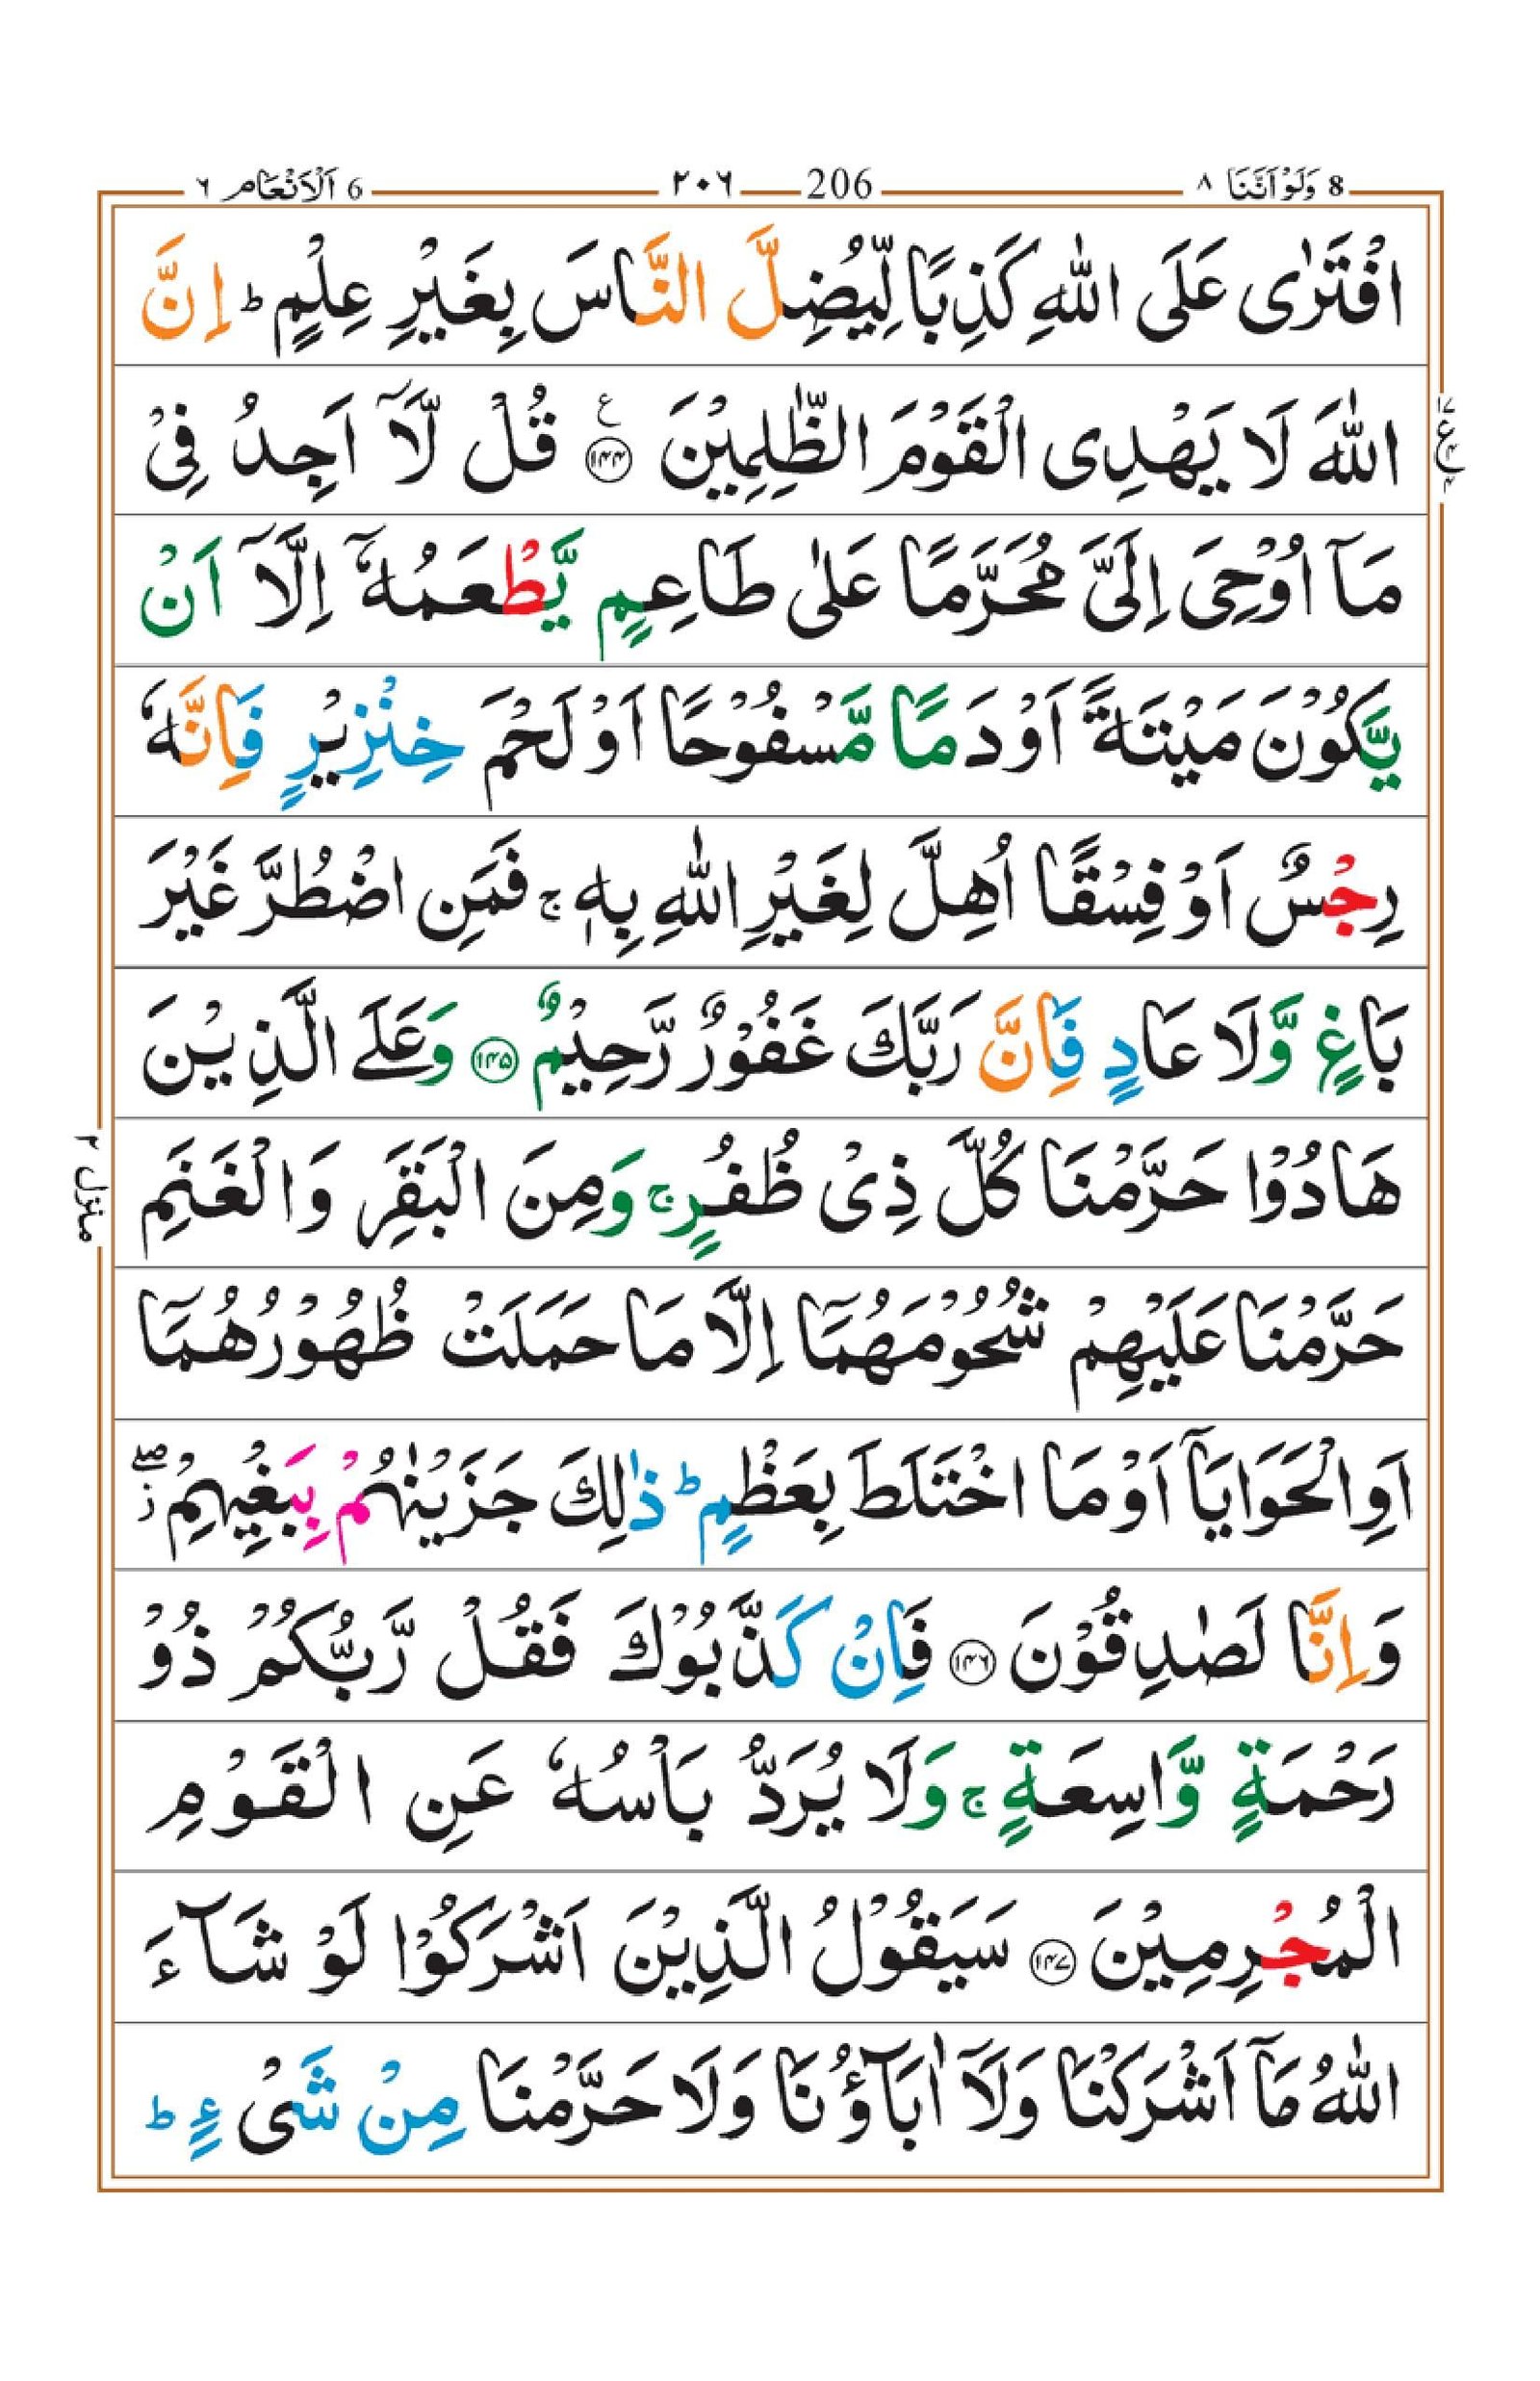 8 وَلَوْ اَنَّنَا ٨ 206 ٢٠٦ 6 اَلْاَنْعَام ٦
افْتَرٰى عَلَى اللّٰهِ كَذِبًا لِّيُضِلَّ النَّاسَ بِغَيْرِ عِلْمٍ ؕ اِنَّ
اللّٰهَ لَا يَهْدِى الْقَوْمَ الظّٰلِمِيْنَ ﴿۱۴۴﴾ ع قُلْ لَّاۤ اَجِدُ فِىْ
مَاۤ اُوْحِىَ اِلَىَّ مُحَرَّمًا عَلٰى طَاعِمٍ يَّطْعَمُهٗۤ اِلَّاۤ اَنْ
يَّكُوْنَ مَيْتَةً اَوْ دَمًا مَّسْفُوْحًا اَوْ لَحْمَ خِنْزِيْرٍ فَاِنَّهٗ
رِجْسٌ اَوْ فِسْقًا اُهِلَّ لِغَيْرِ اللّٰهِ بِهٖ ۚ فَمَنِ اضْطُرَّ غَيْرَ
بَاغٍ وَّلَا عَادٍ فَاِنَّ رَبَّكَ غَفُوْرٌ رَّحِيْمٌ ﴿۱۴۵﴾ وَعَلَى الَّذِيْنَ
هَادُوْا حَرَّمْنَا كُلَّ ذِىْ ظُفُرٍ ۚ وَمِنَ الْبَقَرِ وَالْغَنَمِ
حَرَّمْنَا عَلَيْهِمْ شُحُوْمَهُمَاۤ اِلَّا مَا حَمَلَتْ ظُهُوْرُهُمَاۤ
اَوِ الْحَوَايَاۤ اَوْ مَا اخْتَلَطَ بِعَظْمٍ ؕ ذٰلِكَ جَزَيْنٰهُمْ بِبَغْيِهِمْ ۖز
وَاِنَّا لَصٰدِقُوْنَ ﴿۱۴۶﴾ فَاِنْ كَذَّبُوْكَ فَقُلْ رَّبُّكُمْ ذُوْ
رَحْمَةٍ وَّاسِعَةٍ ۚ وَلَا يُرَدُّ بَاْسُهٗ عَنِ الْقَوْمِ
الْمُجْرِمِيْنَ ﴿۱۴۷﴾ سَيَقُوْلُ الَّذِيْنَ اَشْرَكُوْا لَوْ شَآءَ
اللّٰهُ مَاۤ اَشْرَكْنَا وَلَاۤ اٰبَآؤُنَا وَلَا حَرَّمْنَا مِنْ شَىْءٍ ؕ
منزل ٢